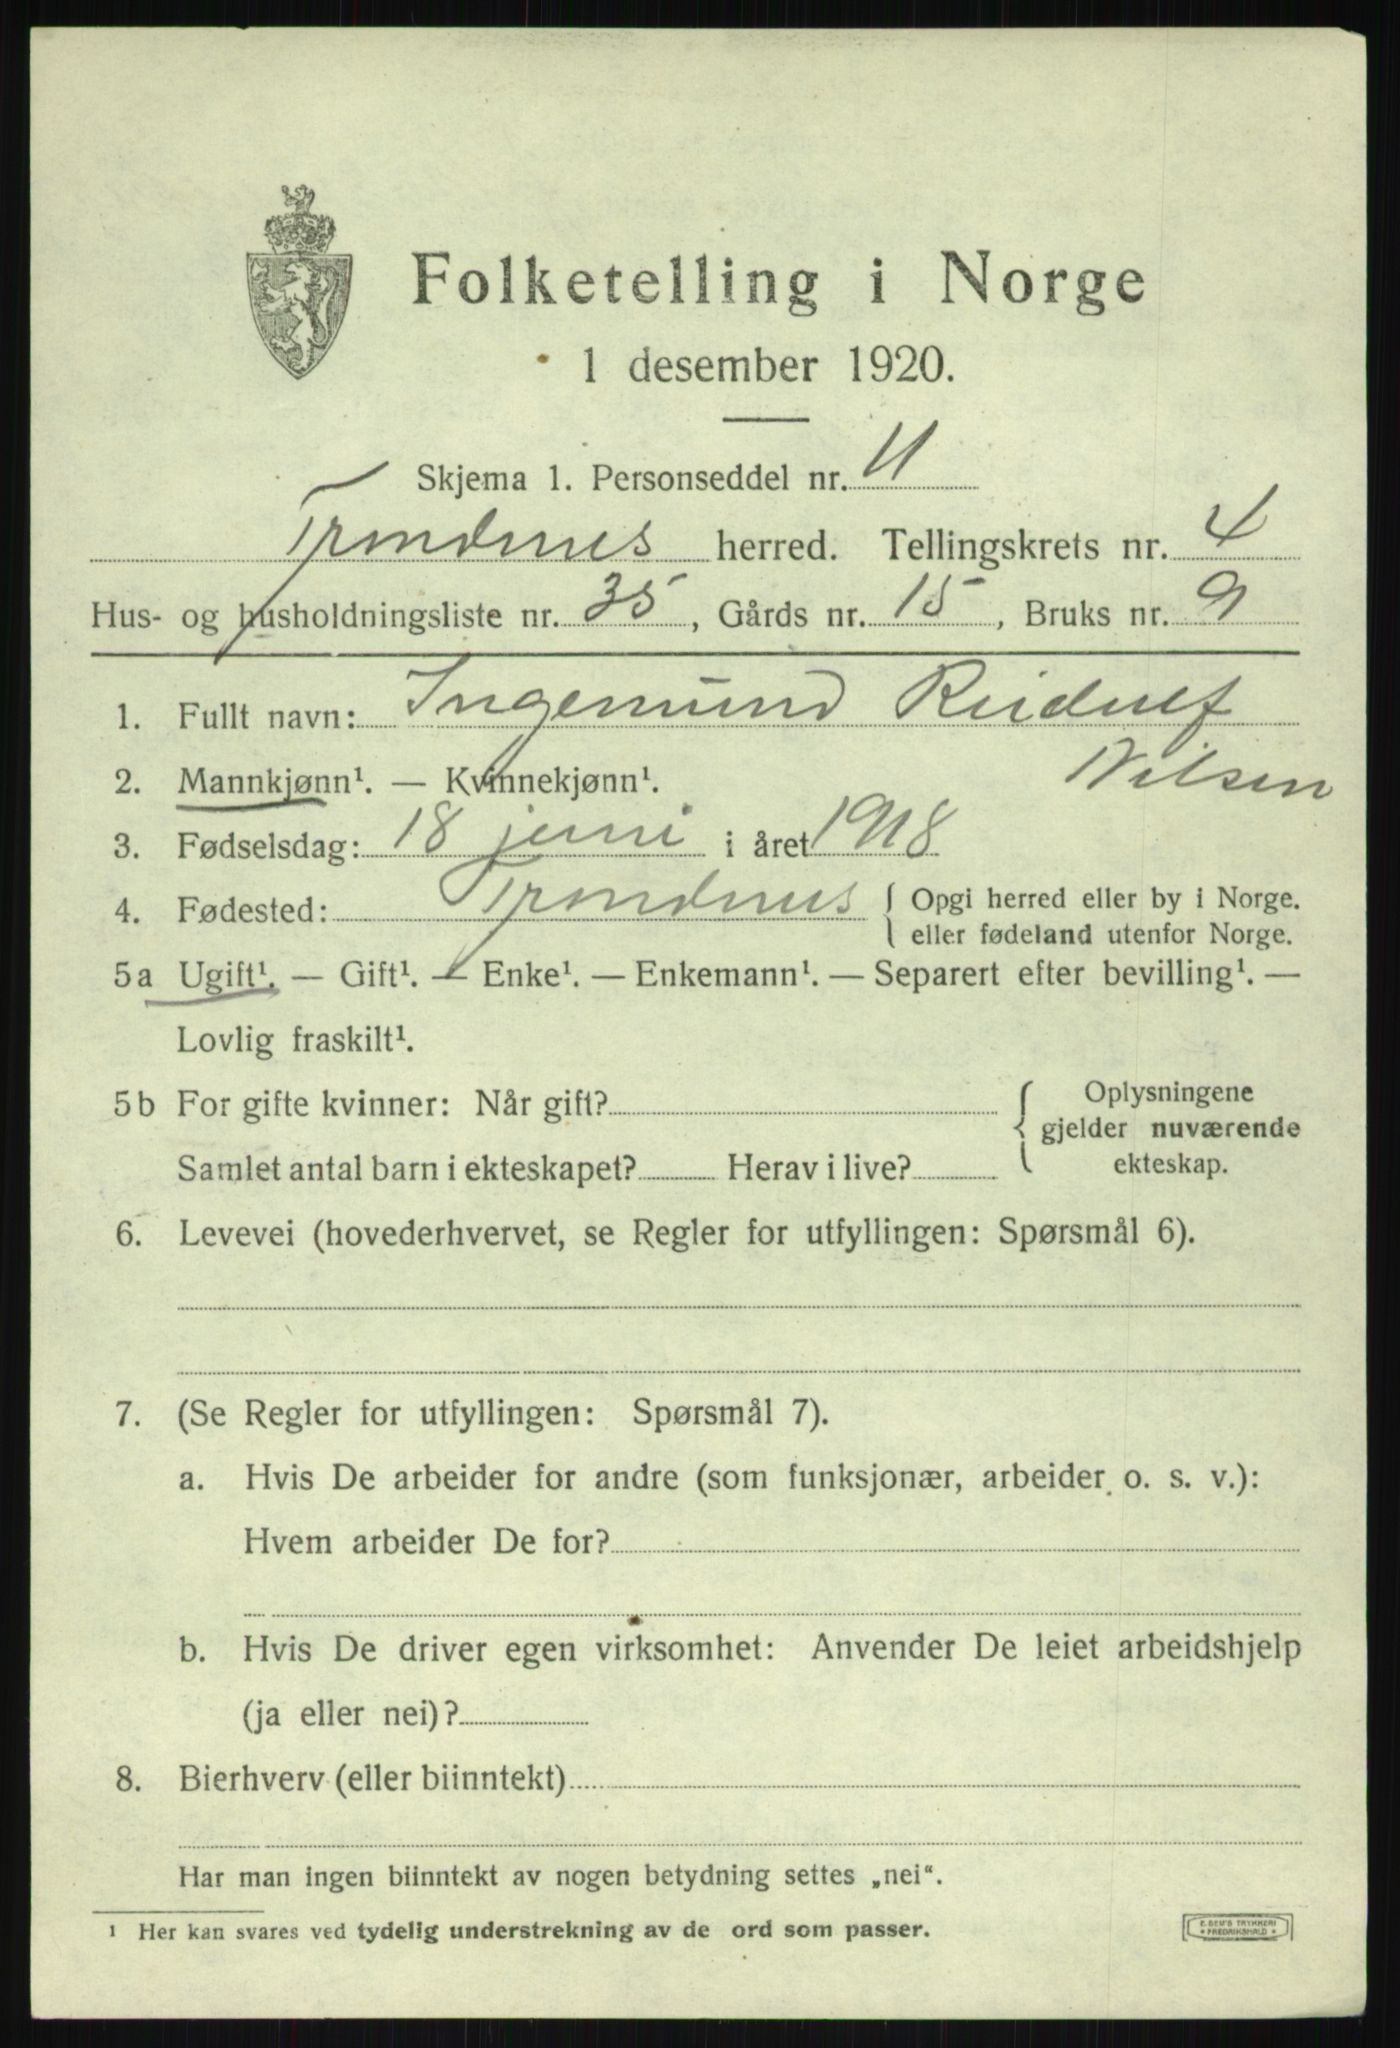 Folketelling i Norge
1 desember 1920.
Skjema 1. Personseddel nr. 11
Trondenes herred. Tellingskrets nr. 4
Hus- og husholdningsliste nr. 35, Gårds nr. 15, Bruks nr. 9
1. Fullt navn: Ingemund Reidulf
Nilsen
2. Mannkjønn¹. — Kvinnekjønn¹.
3. Fødselsdag: 18 juni i året 1918
4. Fødested: Trondenes { Opgi herred eller by i Norge.
eller fødeland utenfor Norge.
5a Ugift¹. — Gift¹. — Enke¹. — Enkemann¹. — Separert efter bevilling¹. —
Lovlig fraskilt¹.
5b For gifte kvinner: Når gift? { Oplysningene
gjelder nuværende
Samlet antal barn i ekteskapet? Herav i live? ekteskap.
6. Levevei (hovederhvervet, se Regler for utfyllingen: Spørsmål 6).
7. (Se Regler for utfyllingen: Spørsmål 7).
a. Hvis De arbeider for andre (som funksjonær, arbeider o. s. v.):
Hvem arbeider De for?
b. Hvis De driver egen virksomhet: Anvender De leiet arbeidshjelp
(ja eller nei)?
8. Bierhverv (eller biinntekt)
Har man ingen biinntekt av nogen betydning settes „nei“.
¹ Her kan svares ved tydelig understrekning av de ord som passer.
E. SEM'S TRYKKERI
* FREDRIKSHALD *